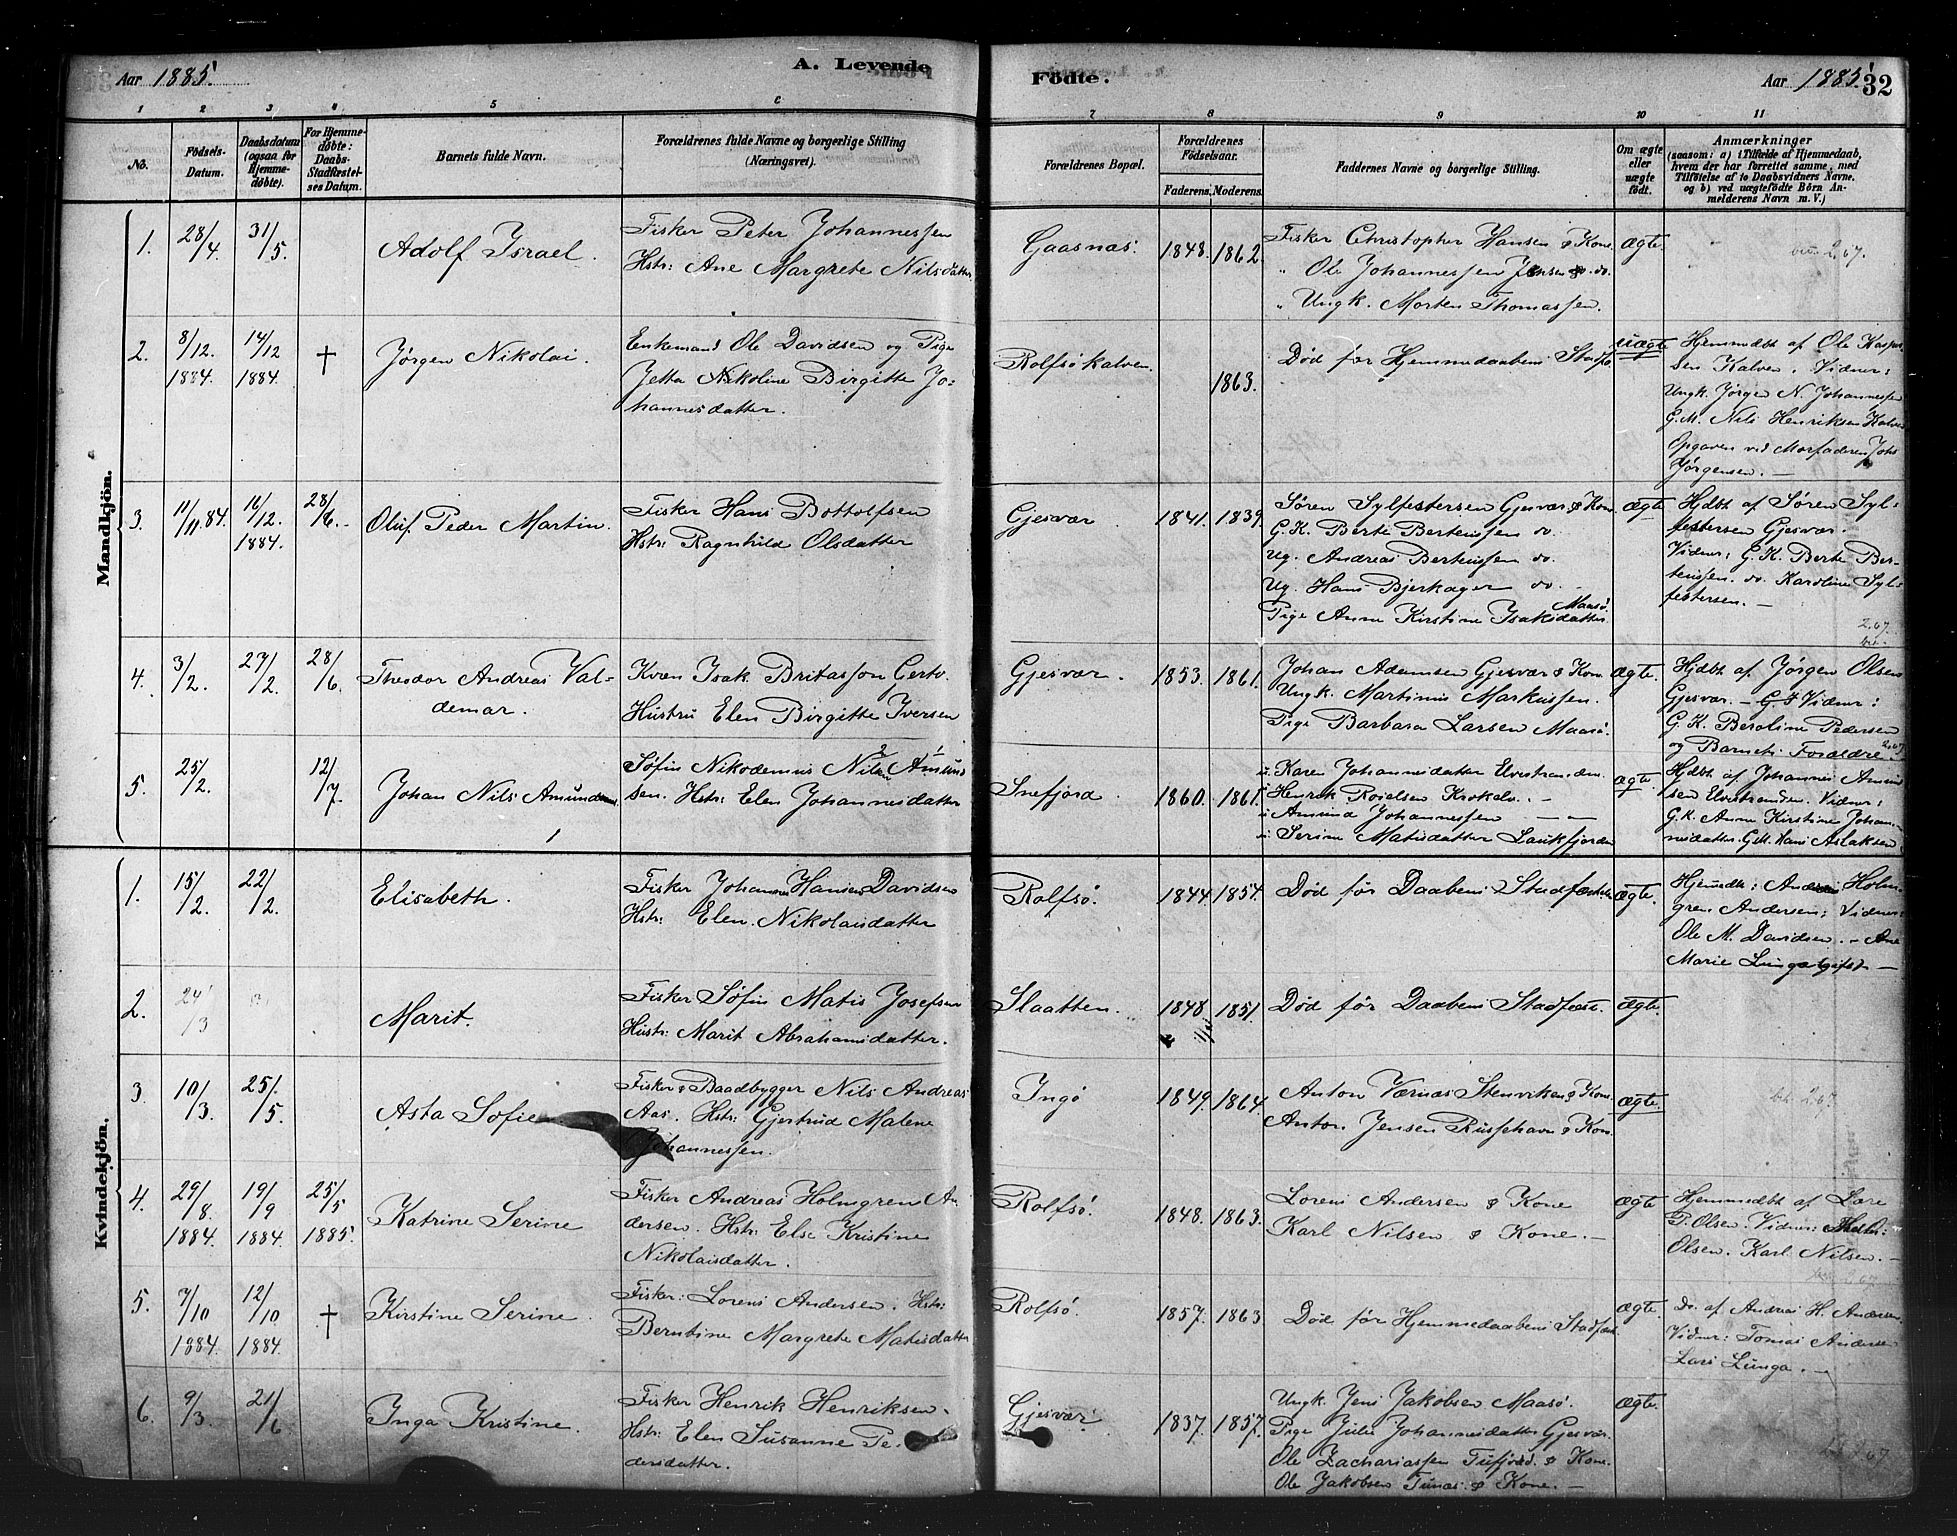 Aar 1885.
A. Levende
Födte.
Aar 1885.
32
1 2 3 4 5 6 7 8 9 10 11
No.
Födsels-
Datum.
Daabsdatum
(ogsaa for
Hjemme-
døbte).
For Hjemme-
døbte:
Daabs-
Stadfæstel-
ses Datum.
Barnets fulde Navn.
Forældrenes fulde Navne og borgerlige Stilling
(Næringsvei).
Forældrenes Bopæl.
Forældrenes
Födselsaar.
Faderens. Moderens.
Faddernes Navne og borgerlige Stilling.
Om ægte
eller
uægte
födt.
Anmærkninger
(saasom: a) i Tilfælde af Hjemmedaab,
hvem der har forrettet samme, med
Tilföielse af to Daabsvidners Navne,
og b) ved uægtefödte Börn An-
melderens Navn m. V.)
Mandkjön.
1. 28/4 31/5 Adolf Israel.
Fisker Peter Johannessen
Hstr: Ane Margrete Nilsdatter
Gaasnæs. 1848. 1862.
Fisker Christopher Hansen & Kone.
" Ole Johannessen Jensen & do.
" Ungk. Morten Thomassen.
ægte
2.67.
2. 8/12. 1884. 14/12 1884. † Jørgen Nikolai.
Enkemand Ole Davidsen og Pige
Jetta Nikoline Birgitte Jo-
hannesdatter.
Rolfsö kalven. 1863.
Død før Hjemmedaabens Stadfs.
uægte
Hjemmedbt af Ole Kasper-
sen Kalven. Vidner:
Ungk. Jørgen N. Johannessen
G.M. Nils Henriksen Kalven
Opgaven ved Morfaderen Johs
Jørgensen. —
3. 11/11.84. 16/12. 1884. 28/6. Oluf Peder Martin.
Fisker Hans Bottolfsen
Hstr: Ragnhild Olsdatter
Gjesvær. 1841. 1839.
Søren Sylfestersen Gjesvær & Kone
G.K. Berte Berteussen do.
Ug. Andreas Berteussen do.
Ug. Hans Bjerkager do. —
Pige Anne Kirstine Isaksdatter Maasö.
ægte
Hjdbt af Søren Syl-
festersen Gjesvær.
Vidner: G.K. Berte Ber-
teussen. do. Karoline Syl-
festersen. —
2.67.
4. 3/2. 27/2. 28/6. Theodor Andreas Val-
demar.
Kven Isak Britasson Gerto.
Hustru Elen Birgitte Iversen
Gjesvær. 1853. 1861.
Johan Adamsen Gjesvær & Kone
Ungk. Martinus Markussen.
Pige Barbara Larsen Maasö.
ægte.
Hjdbt af Jørgen Olsen
Gjesvær. — Vidner:
G.K. Beroline Pedersen
og Barnets Forældre.
2.67
5. 25/2. 12/7. Johan Nils Amundsen
Søfin Nikodemus Nilsen Amund
sen. Hstr: Elen Johannesdatter
Snefjord. 1860. 1861.
Karen Johannesdatter Elvestranden.
Henrik Roielsen Krokelv. —
Amund Johannessen — —
Serine Matisdatter Laukfjorden
ægte.
Hjdbt af Johannes Amund
sen Elvestranden. Vidner:
G.K. Anne Kirstine Johan-
nesdatter. G.M. Hans Aslaksen
Kvindekjön.
1. 15/2. 22/2. Elisabeth.
Fisker Johannes Hansen Davidsen
Hstr: Elen Nikolaisdatter
Rolfsö. 1844. 1854.
Död før Daabens Stadfæstelse
ægte.
Hjemmedbt: Andreas Holm-
gren Andersen; Vidner:
Ole M. Davidsen. — Ane
Marie Lunga —
2. 24/3 Marit.
Fisker Søfin Matis Josefsen
Hustr: Marit Abrahamsdatter.
Slaatten. 1848 1851.
Död før Daabens Stadfæst.
ægte.
3. 10/3. 25/5. Asta Sofie
Fisker & Baadbygger Nils Andreas
Aas. Hstr: Gjertrud Malene
Johannessen.
Ingø 1849. 1864.
Anton Værnæs Stenviken & Kone.
Anton Jensen Russehavn & Kone
ægte.
2.67.
4. 29/8. 1884. 19/9 1884. 25/5 1885. Katrine Serine
Fisker Andreas Holmgren An
dersen. Hstr: Else Kristine
Nikolaisdatter.
Rolfsö. 1848. 1863.
Lorens Andersen & Kone
Karl Nilsen & Kone. —
ægte
Hjemmedbt af Lare
P. Olsen. Vidner:
Olsen. Karl Nilsen. —
5. 7/10 1884. 12/10 1884. † Kirstine Serine.
Fisker: Lorens Andersen. Hstr:
Berntine Margrete Matisdatter
Rolfsö. 1857. 1863
Död før Hjemmedaabens Stadfæst.
ægte.
Do. af Andreas H. Andersen
Vidner: Tomas Andersen
Lars Lunga. —
6. 9/3. 21/6 Inga Kristine.
Fisker Henrik Henriksen.
Hstr: Elen Susanne Pe-
dersdatter.
Gjesvær. 1837. 1857.
Ungk. Jens Jakobsen Maasö.
Pige Julie Johannesdatter Gjesvær.
Ole Zachariassen Tufjord. & Kone.
Ole Jakobsen Tunæs. & Kone. —
ægte.